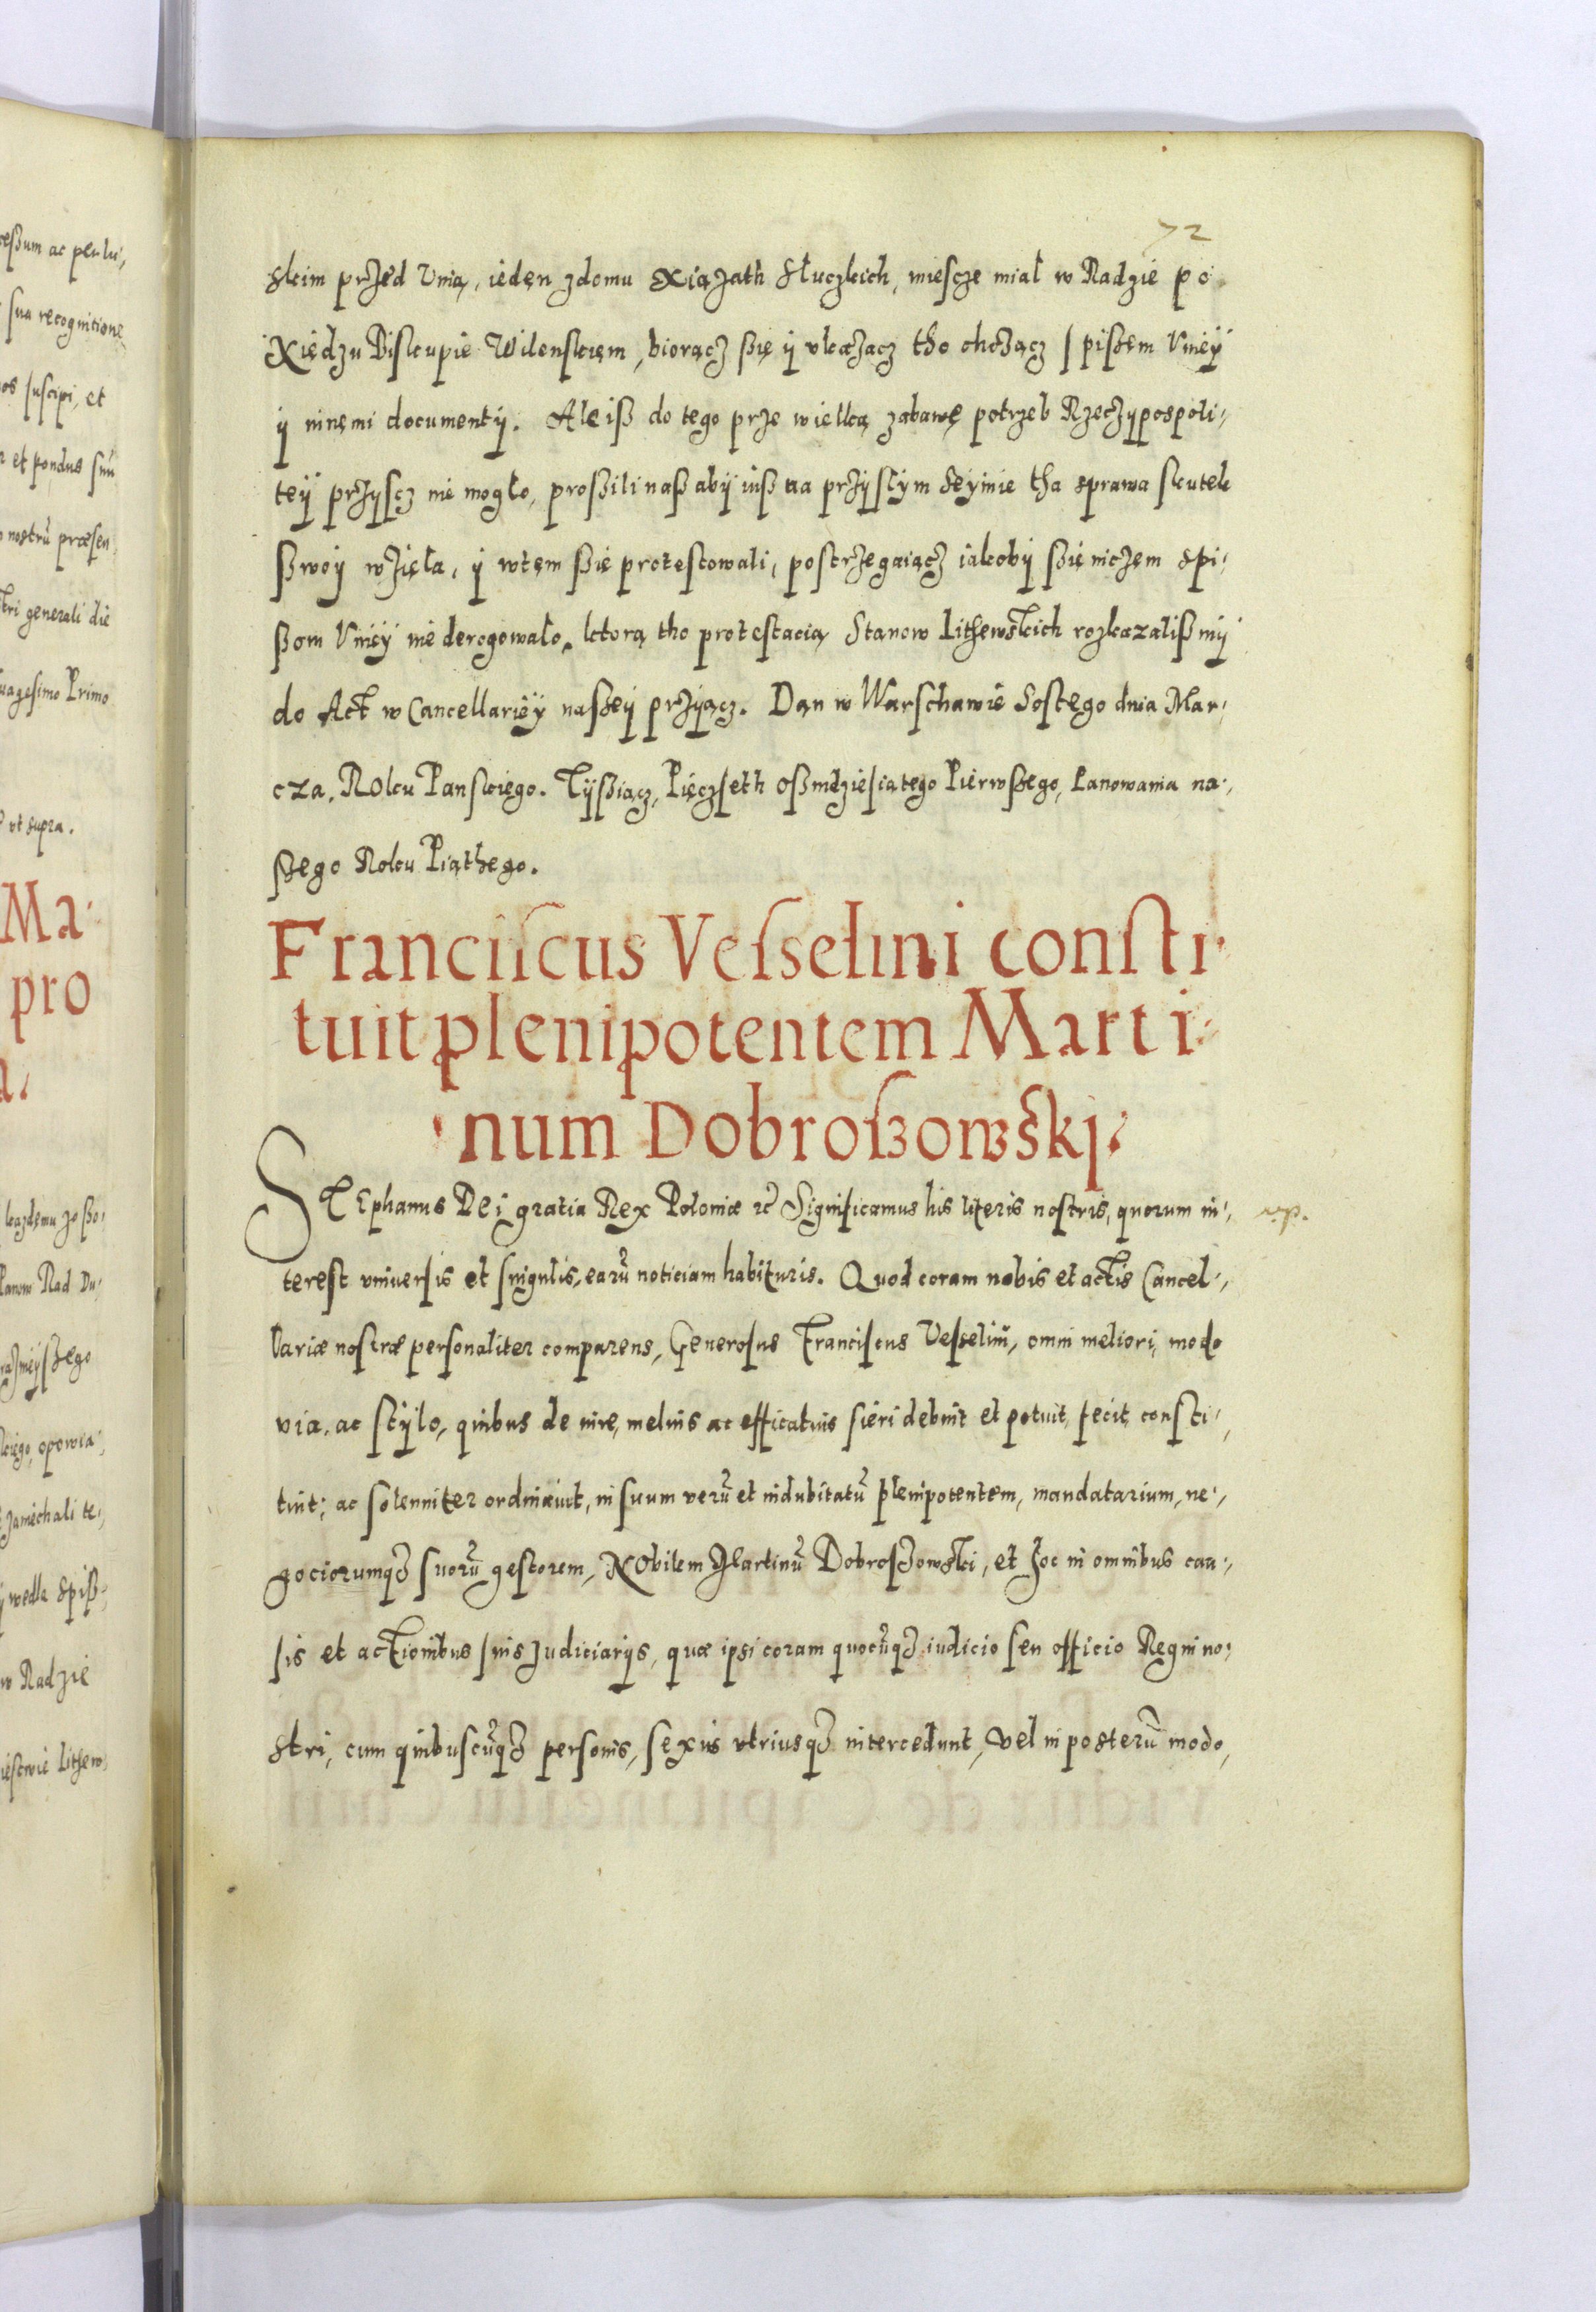 72
skim przed Vnią, ieden zdomu Xiążath Słuczkich, miescze miał w Radzie po
Xiędzu Biskupie Wilenskiem, biorącz ßię ÿ vkażacz tho chcżącz spisżem Vnieÿ
ÿ innemi documentÿ. Ale iß do tego prze wielką zabawę potrzeb Rzeczÿpospoli-
teÿ przÿscz nie mogło, proßili naß abÿ iuß na przÿsłÿm Seÿmie tha sprawa skutek
ßwoÿ wzięła, ÿ wtem ßię protestowali, postrzegaiącz iakobÿ ßię niczem Spi-
ßom Vnieÿ nie derogowało, ktorą tho protestacią Stanow Lithewskich rozkazalißmÿ
do Act w Cancellarieÿ naszeÿ przÿącz. Dan w Warschawie Sostego dnia Mar-
cza, Roku Panskiego. Tÿßiącz, Pięczseth oßmdziesiątego Pierwszego, Panowania na-
szego Roku Piąthego.
Franciscus Vesselini consti-
tuit plenipotentem Marti-
num Dobroßowski.
STEphanus Dei gratia Rex Poloniæ &c Significamus his literis nostris, quorum in-
terest vniuersis et singulis, earũ noticiam habituris. Quod coram nobis et actis Cancel-
lariæ nostræ personaliter comparens, Generosus Franciscus Vesselini, omni meliori, modo
via, ac stÿlo, quibus de iure, melius ac efficatius fieri debuit et potuit, fecit, consti-
tuit; ac solenniter ordinauit, in suum verũ et indubitatũ plenipotentem, mandatarium, ne-
gociorumqꝫ suorũ gestorem, Nobilem Martinũ Dobroszowski, et hoc in omnibus cau-
sis et actionibus suis Judiciarijs, quæ ipsi coram quocũqꝫ iudicio seu officio Regni no-
stri, cum quibuscũqꝫ personis, sexus vtriusqꝫ intercedunt, vel in posterũ modo,